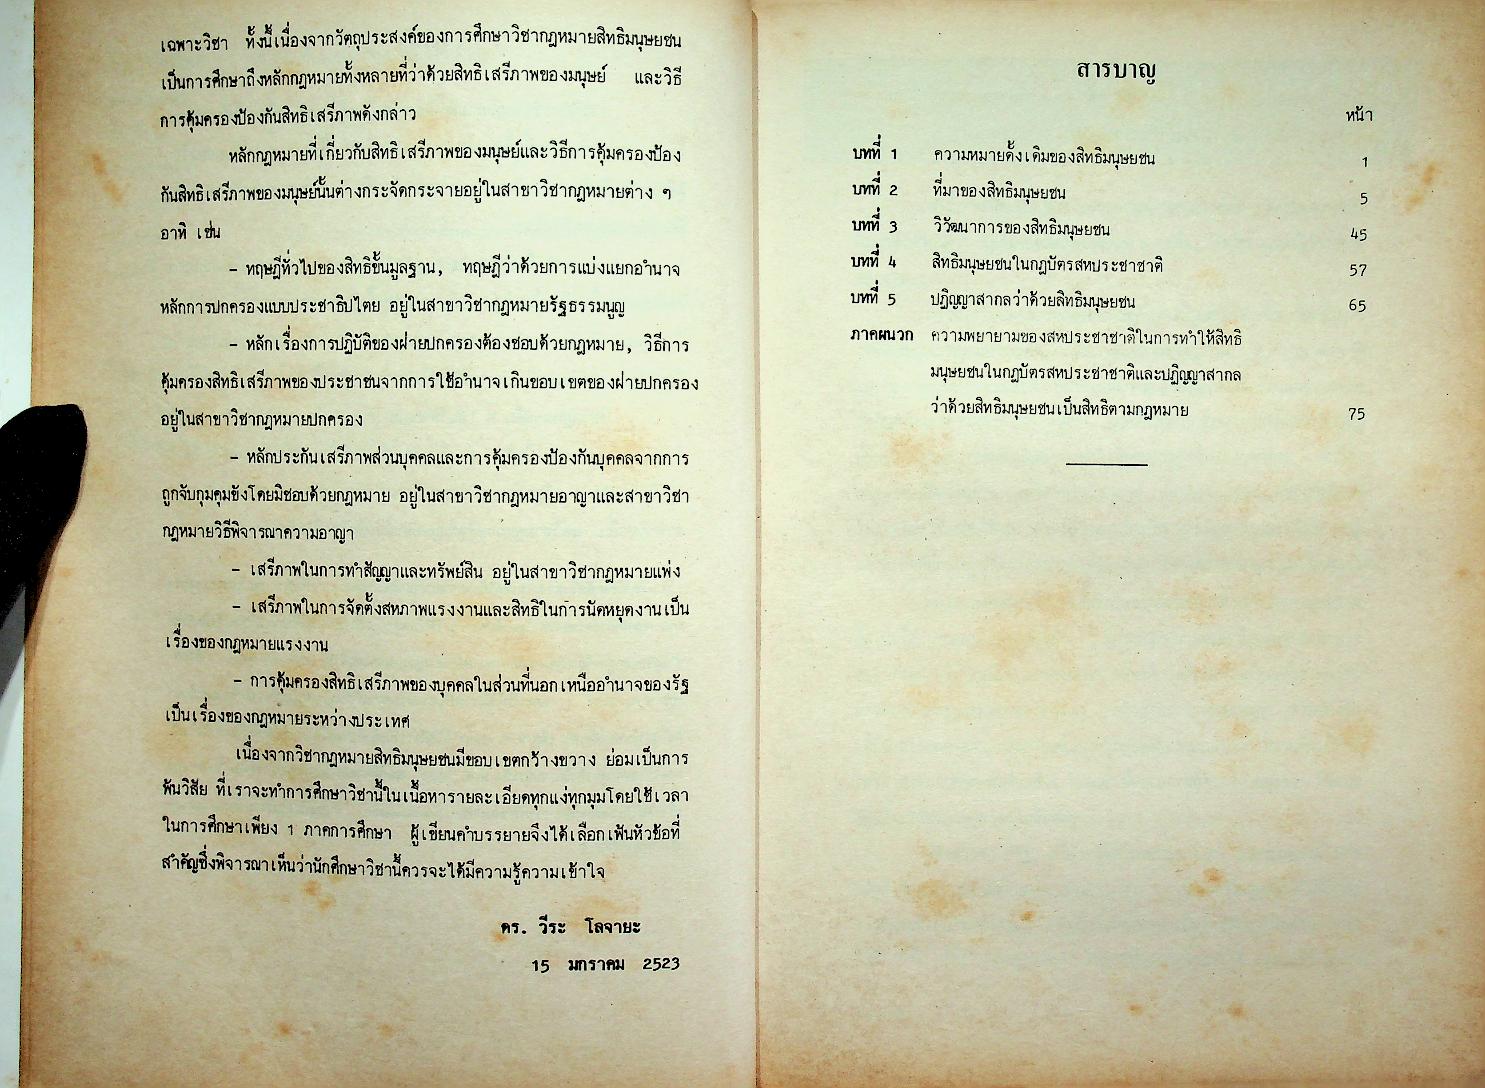 เฉพาะวิชา ทั้งนี้เนื่องจากวัตถุประสงค์ของการศึกษาวิชากฎหมายสิทธิมนุษยชน
เป็นการศึกษาถึงหลักกฎหมายทั้งหลายที่ว่าด้วยสิทธิเสรีภาพของมนุษย์ และวิธี
การคุ้มครองป้องกันสิทธิเสรีภาพดังกล่าว
หลักกฎหมายที่เกี่ยวกับสิทธิเสรีภาพของมนุษย์และวิธีการคุ้มครองป้อง
กันสิทธิเสรีภาพของมนุษย์นั้นต่างกระจัดกระจายอยู่ในสาขาวิชากฎหมายต่าง ๆ
อาทิ เช่น
- ทฤษฎีทั่วไปของสิทธิขั้นมูลฐาน, ทฤษฎีว่าด้วยการแบ่งแยกอำนาจ
หลักการปกครองแบบประชาธิปไตย อยู่ในสาขาวิชากฎหมายรัฐธรรมนูญ
- หลักเรื่องการปฏิบัติของฝ่ายปกครองต้องชอบด้วยกฎหมาย, วิธีการ
คุ้มครองสิทธิเสรีภาพของประชาชนจากการใช้อำนาจเกินขอบเขตของฝ่ายปกครอง
อยู่ในสาขาวิชากฎหมายปกครอง
- หลักประกันเสรีภาพส่วนบุคคลและการคุ้มครองป้องกันบุคคลจากการ
ถูกจับกุมคุมขังโดยมิชอบด้วยกฎหมาย อยู่ในสาขาวิชากฎหมายอาญาและสาขาวิชา
กฎหมายวิธีพิจารณาความอาญา
- เสรีภาพในการทำสัญญาและทรัพย์สิน อยู่ในสาขาวิชากฎหมายแพ่ง
- เสรีภาพในการจัดตั้งสหภาพแรงงานและสิทธิในการนัดหยุดงานเป็น
เรื่องของกฎหมายแรงงาน
- การคุ้มครองสิทธิเสรีภาพของบุคคลในส่วนที่นอกเหนืออำนาจของรัฐ
เป็นเรื่องของกฎหมายระหว่างประเทศ
เนื่องจากวิชากฎหมายสิทธิมนุษยชนมีขอบเขตกว้างขวาง ย่อมเป็นการ
พ้นวิสัย ที่เราจะทำการศึกษาวิชานี้ในเนื้อหารายละเอียดทุกแง่ทุกมุมโดยใช้เวลา
ในการศึกษาเพียง 1 ภาคการศึกษา ผู้เขียนคำบรรยายจึงได้เลือกเฟ้นหัวข้อที่
สำคัญซึ่งพิจารณาเห็นว่านักศึกษาวิชานี้ควรจะได้มีความรู้ความเข้าใจ
ดร. วีระ โลจายะ
15 มกราคม 2523
สารบาญ
หน้า
บทที่ 1 ความหมายดั้งเดิมของสิทธิมนุษยชน 1
บทที่ 2 ที่มาของสิทธิมนุษยชน 5
บทที่ 3 วิวัฒนาการของสิทธิมนุษยชน 45
บทที่ 4 สิทธิมนุษยชนในกฎบัตรสหประชาชาติ 57
บทที่ 5 ปฏิญญาสากลว่าด้วยสิทธิมนุษยชน 65
ภาคผนวก ความพยายามของสหประชาชาติในการทำให้สิทธิ
มนุษยชนในกฎบัตรสหประชาชาติและปฏิญญาสากล
ว่าด้วยสิทธิมนุษยชนเป็นสิทธิตามกฎหมาย 75